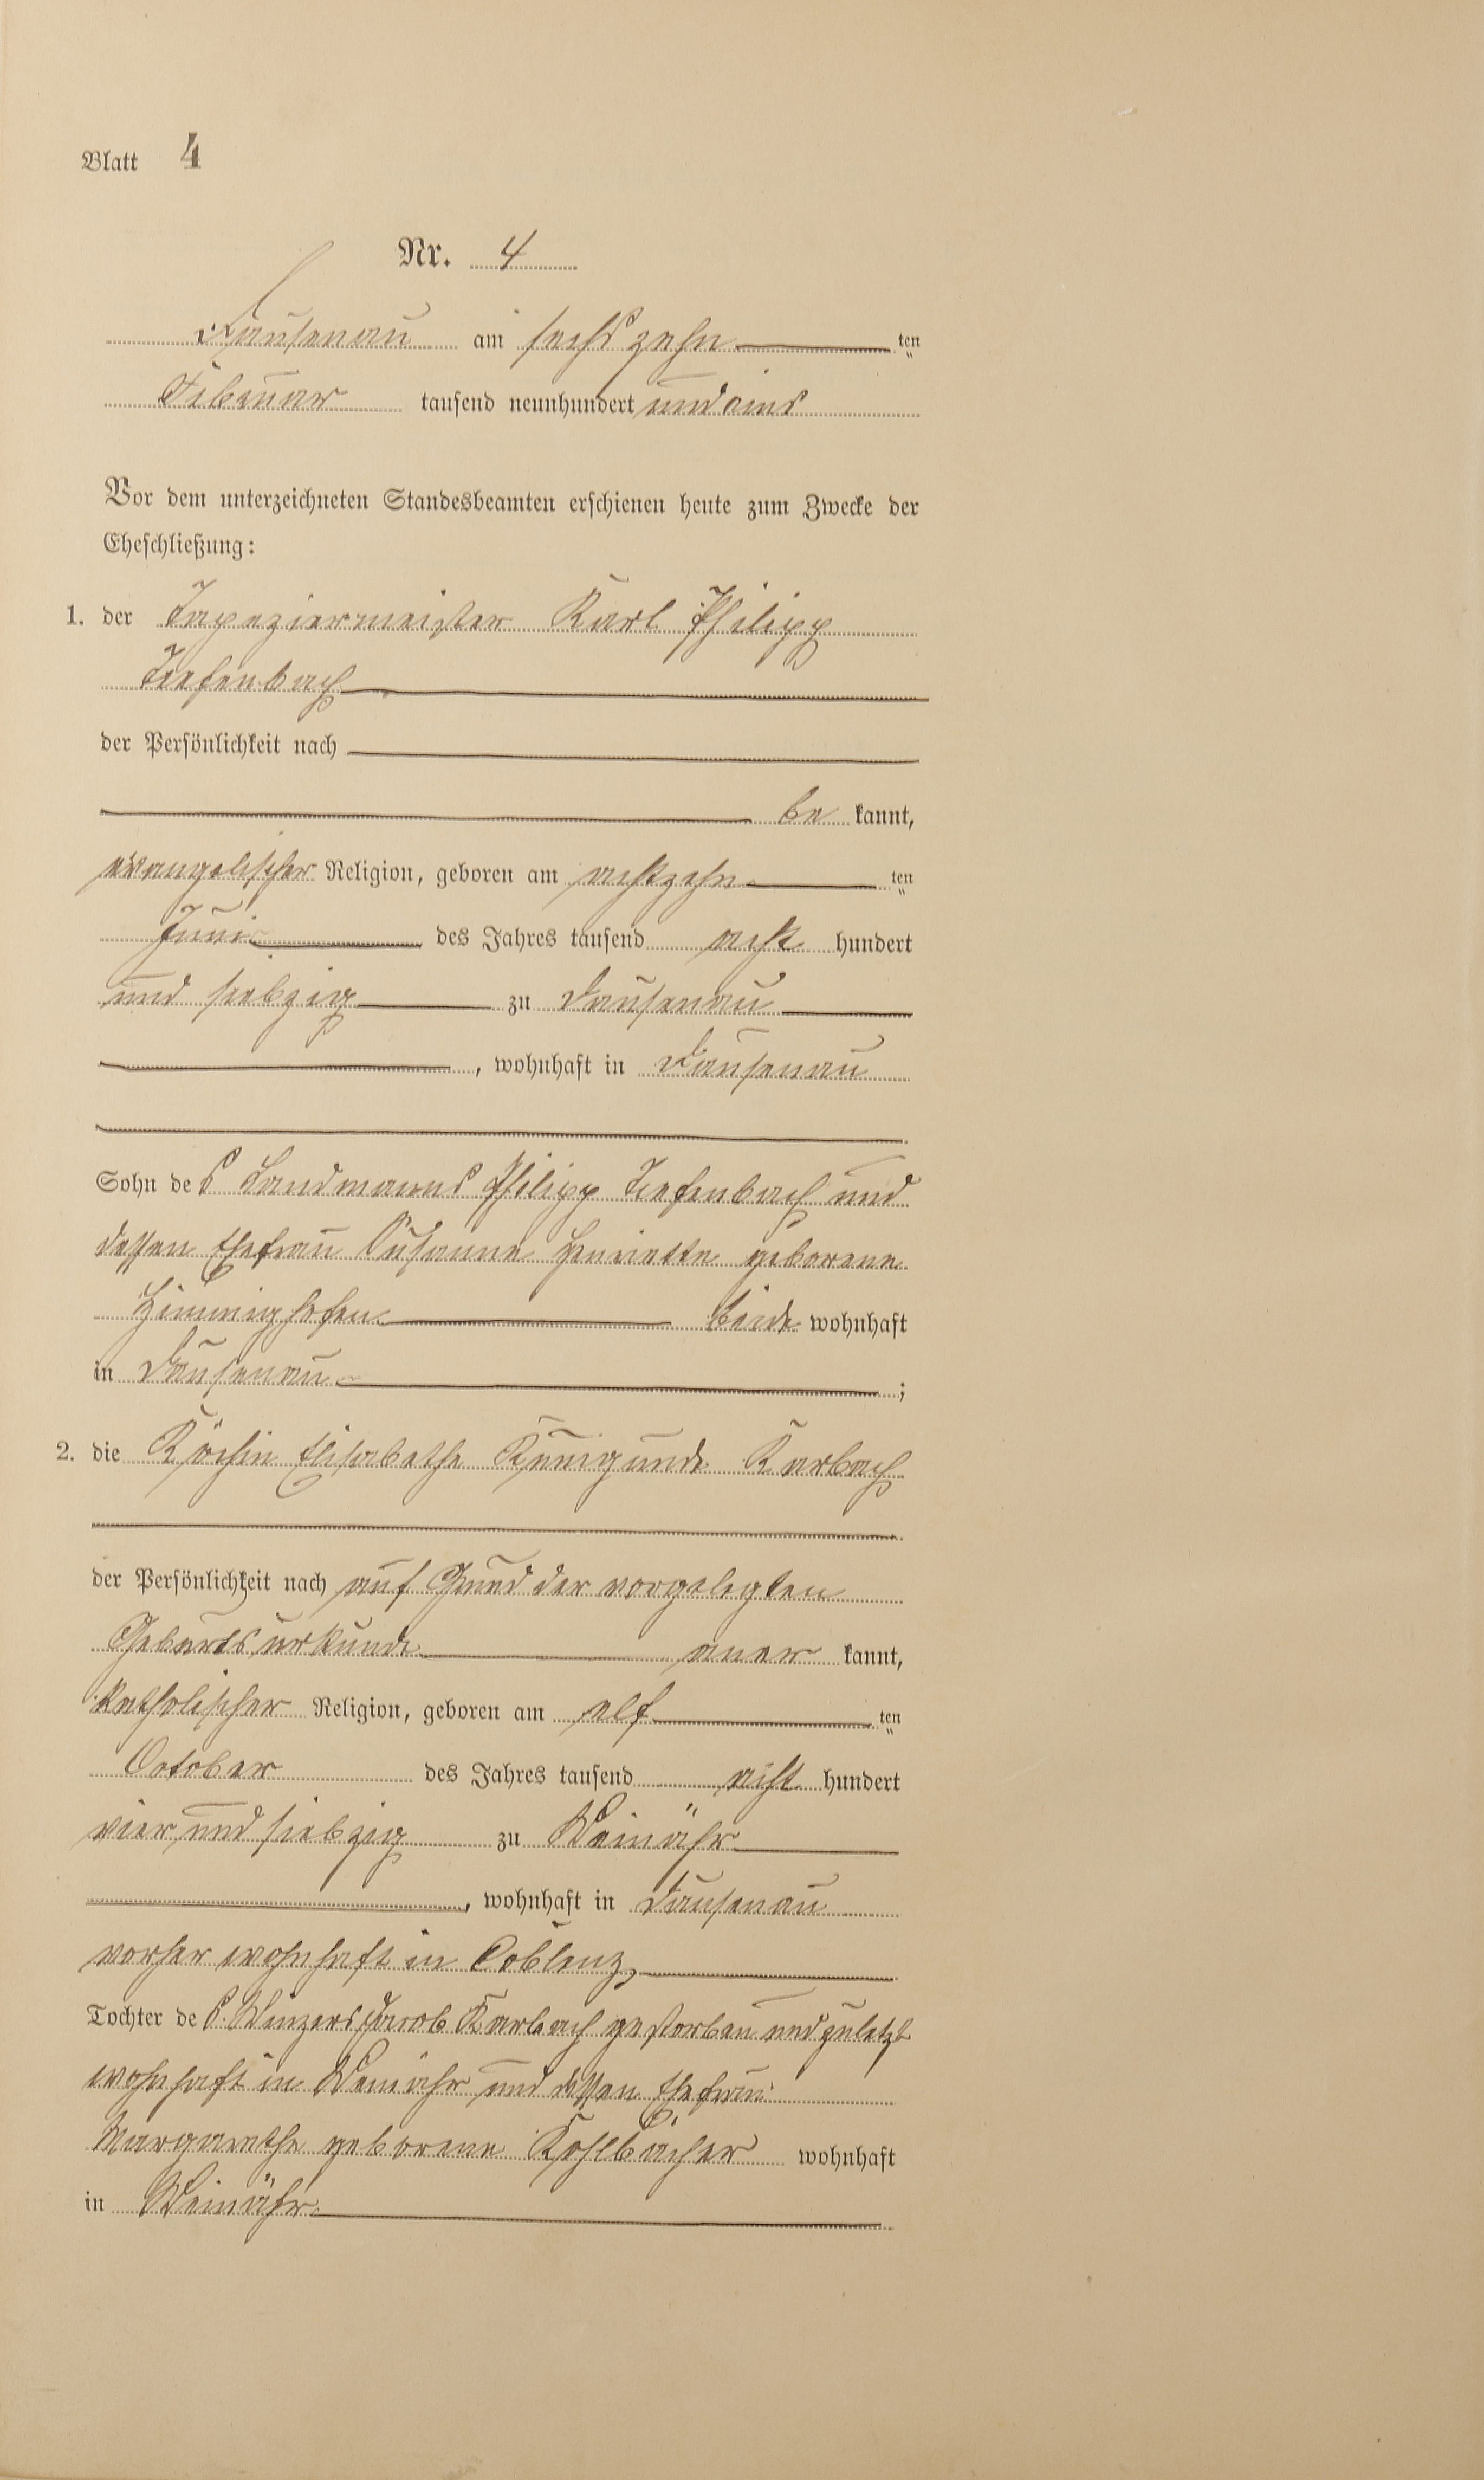 Blatt 4
Nr. 4
Dausenau am sechszehn ten
Februar tausend neunhundert und eins
Vor dem unterzeichneten Standesbeamten erschienen heute zum Zwecke der
Eheschließung:
1. der Tapeziermeister Karl Philipp
Tiefenbach
der Persönlichkeit nach
be kannt,
evangelischer Religion, geboren am achtzehn ten
Juni des Jahres tausend acht hundert
und siebzig zu Dausenau
, wohnhaft in Dausenau
Sohn des Landmanns Philipp Tiefenbach und
dessen Ehefrau Susanna Henriette geborene
Himmighofen beide wohnhaft
in Dausenau ;
2. die Köchin Elisabetha Kunigunde Karbach
der Persönlichkeit nach auf Grund der vorgelegten
Geburtsurkunde aner kannt,
katholischer Religion, geboren am elf ten
October des Jahres tausend acht hundert
vier und siebzig zu Weinähr
, wohnhaft in Dausenau
vorher wohnhaft in Coblenz,
Tochter des Winzers Jacob Karbach gestorben und zuletzt
wohnhaft in Weinähr und dessen Ehefrau
Margaretha geborene Kohlbacher wohnhaft
in Weinähr